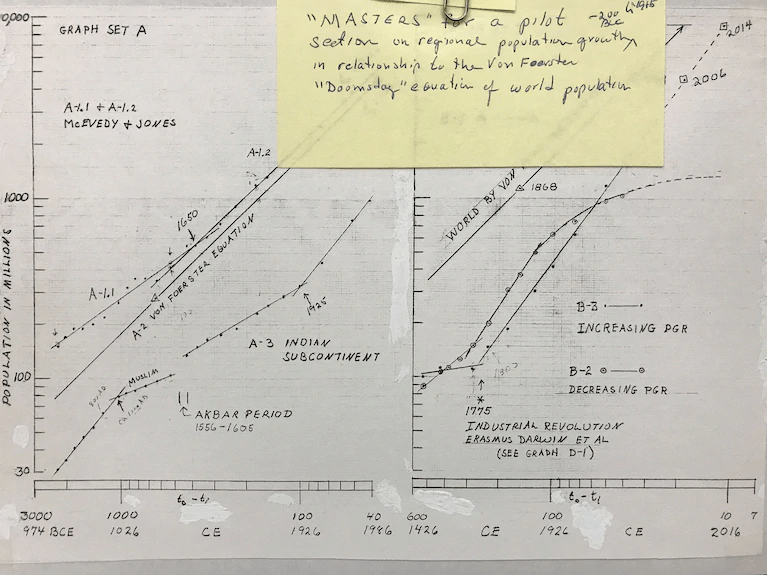 "MASTERS" for a pilot
section on regional population growth
in relationship to the Von Foerster
"Doomsday" equation of world population
~200
BCE
GRAPH SET A
A-1.1 + A-1.2
McEVEDY + JONES
POPULATION IN MILLIONS
1000
100
30
A-1.2
1650
A-1.1
A-2 VON FOERSTER EQUATION
1925
A-3 INDIAN
SUBCONTINENT
MUSLIM
AKBAR PERIOD
1556-1605
to - t1
3000 1000 100 40
974 BCE 1026 CE 1926 1986
2014
2006
WORLD BY VON
1868
B-3
INCREASING PGR
B-2
DECREASING PGR
1775
INDUSTRIAL REVOLUTION
ERASMUS DARWIN ET AL
(SEE GRAPH D-1)
to - t1
600 100 10 7
1426 CE 1926 CE 2016